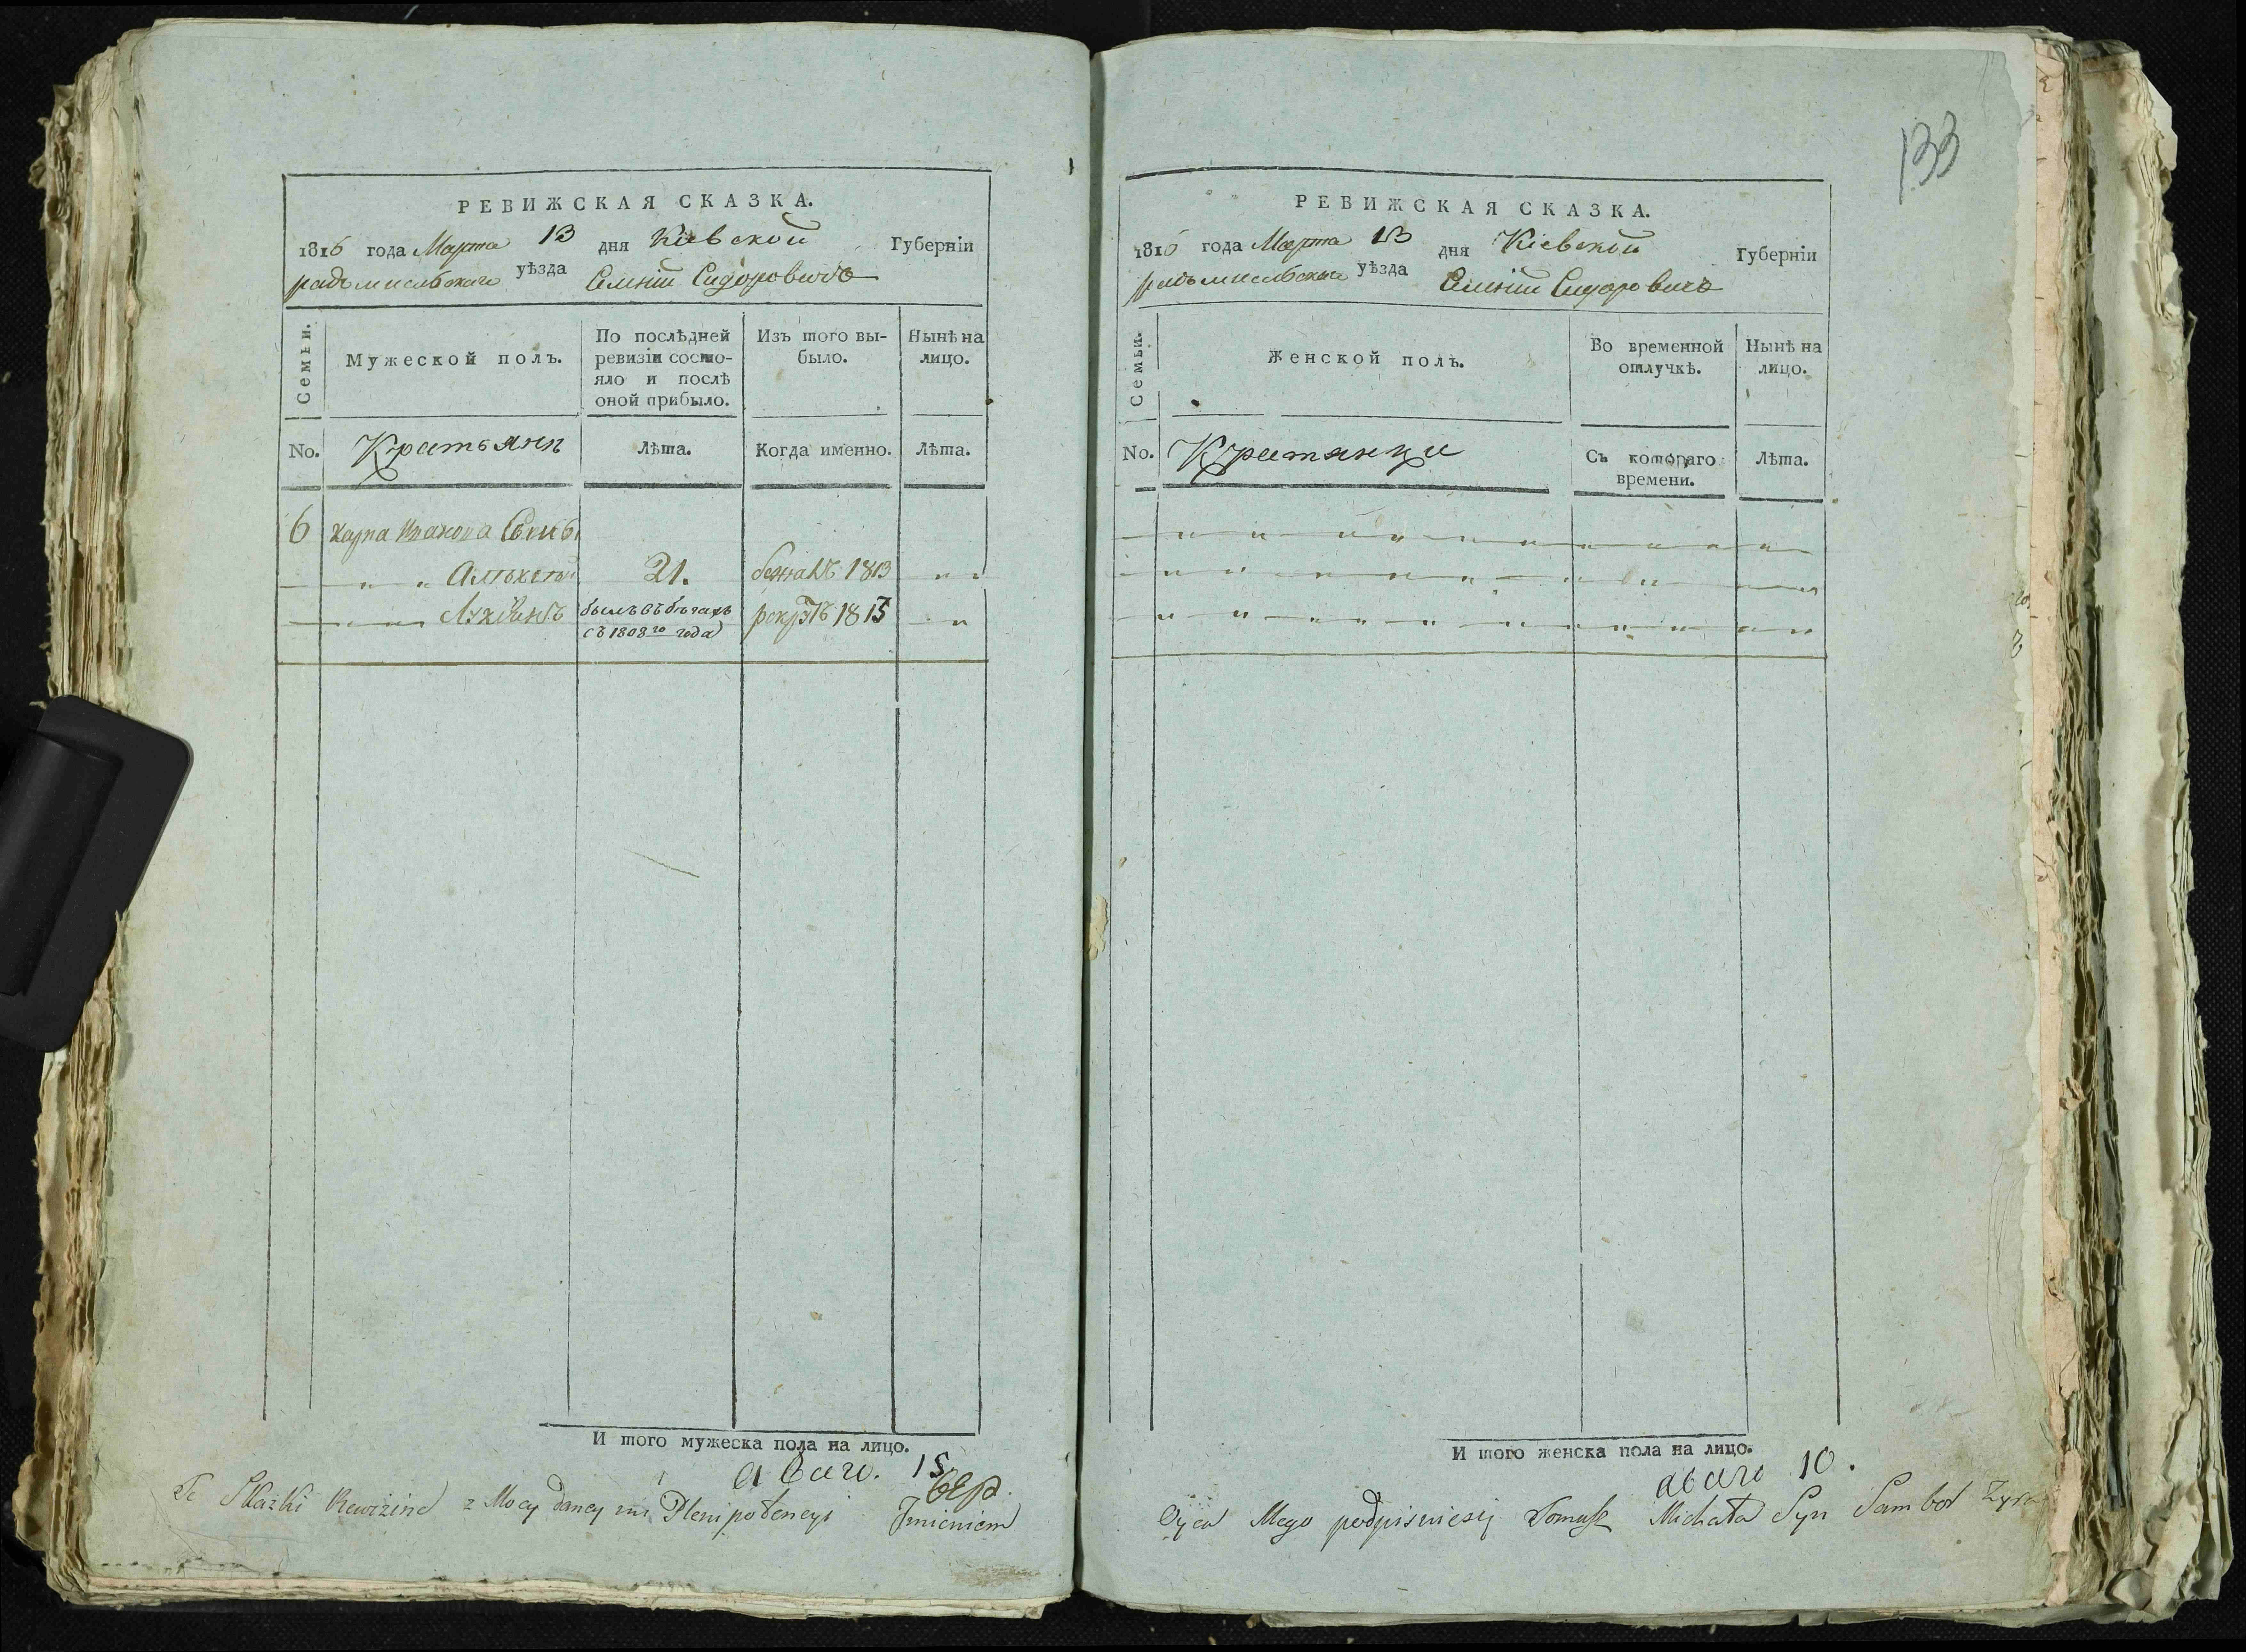 РЕВИЖСКАЯ СКАЗКА.
1816 года Марта 13 дня Кіевской Губерніи
радомисльскаго уѣзда Селенія Сидоровичъ
Семьи.
Мужеской полъ.
По послѣдней ревизіи состо-
яло и послѣ
оной прибыло.
Изъ того вы-
было.
Нынѣ на
лицо.
No. Крестьянъ
Лѣта.
Когда именно.
Лѣта.
6 Карпа
21. 1813
былъ въ бегахъ
съ 1808го года
1815
И того мужеска пола на лицо.
15
Te Skazki Rewizine z Mocy daney mi Plenipotencyi Jmieniem
133
РЕВИЖСКАЯ СКАЗКА.
1816 года Марта 13 дня Кіевской Губерніи
радомисльскаго уѣзда Селенія Сидоровичъ
Семьи.
Женской полъ.
Во временной
отлучкѣ.
Нынѣ на
лицо.
No. Крестянки
Съ котораго
времени.
Лѣта.
И того женска пола на лицо.
10.
Oyca Mego podpisuiesię Tomasz Michała Syn